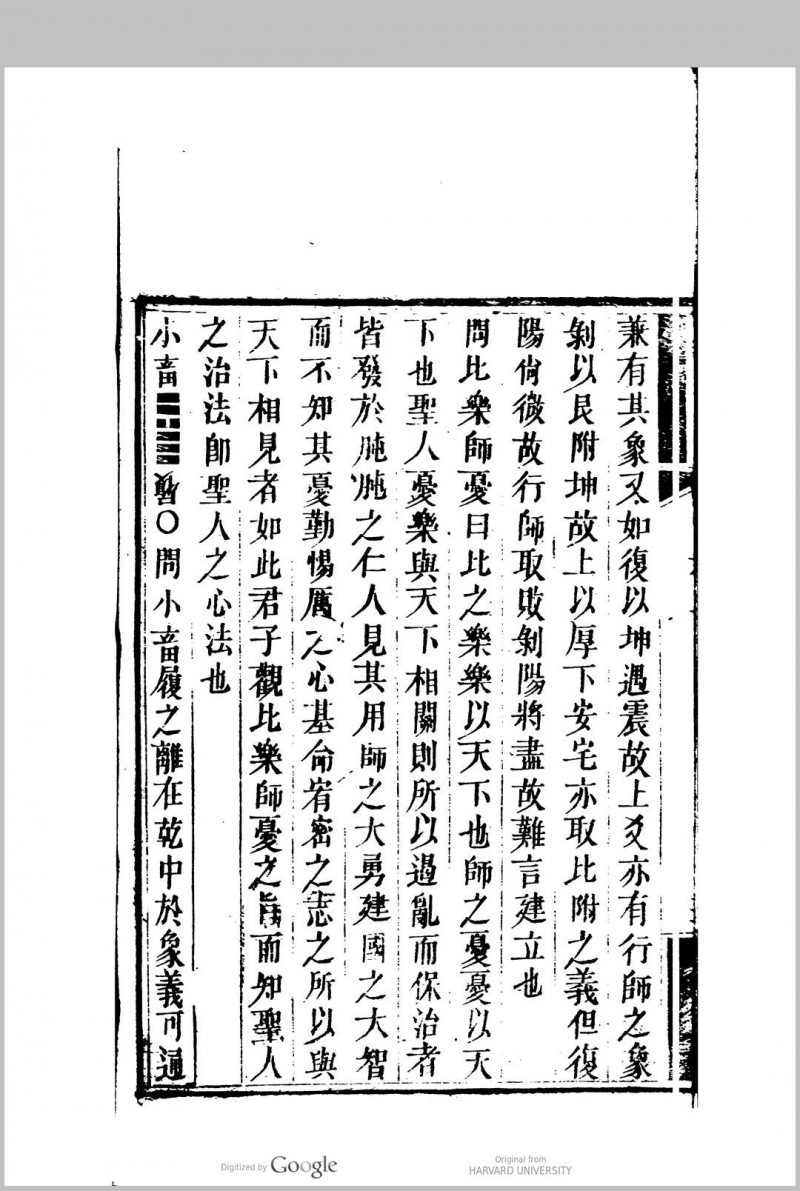 兼有其象又如復以坤遇震故上爻亦有行師之象
剝以艮附坤故上以厚下安宅亦取比附之義但復
陽尚微故行師取敗剝陽將盡故難言建立也
問比樂師憂曰比之樂樂以天下也師之憂憂以天
下也聖人憂樂與天下相關則所以遏亂而保治者
皆發於肫肫之仁人見其用師之大勇建國之大智
而不知其憂勤惕厲之心基命宥密之志之所以與
天下相見者如此君子觀比樂師憂之旨而知聖人
之治法卽聖人之心法也
小畜䷈履〇問小畜履之離在乾中於象義可通
Digitized by Google
Original from
HARVARD UNIVERSITY